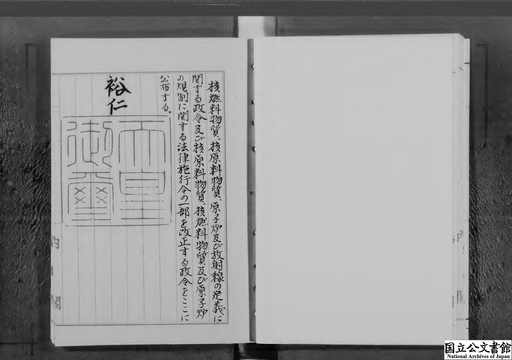 核燃料物質、核原料物質、原子炉及び放射線の定義に
関する政令及び核原料物質、核燃料物質及び原子炉
の規制に関する法律施行令の一部を改正する政令をここに
公布する。
裕仁
天皇
御璽
国立公文書館
National Archives of Japan